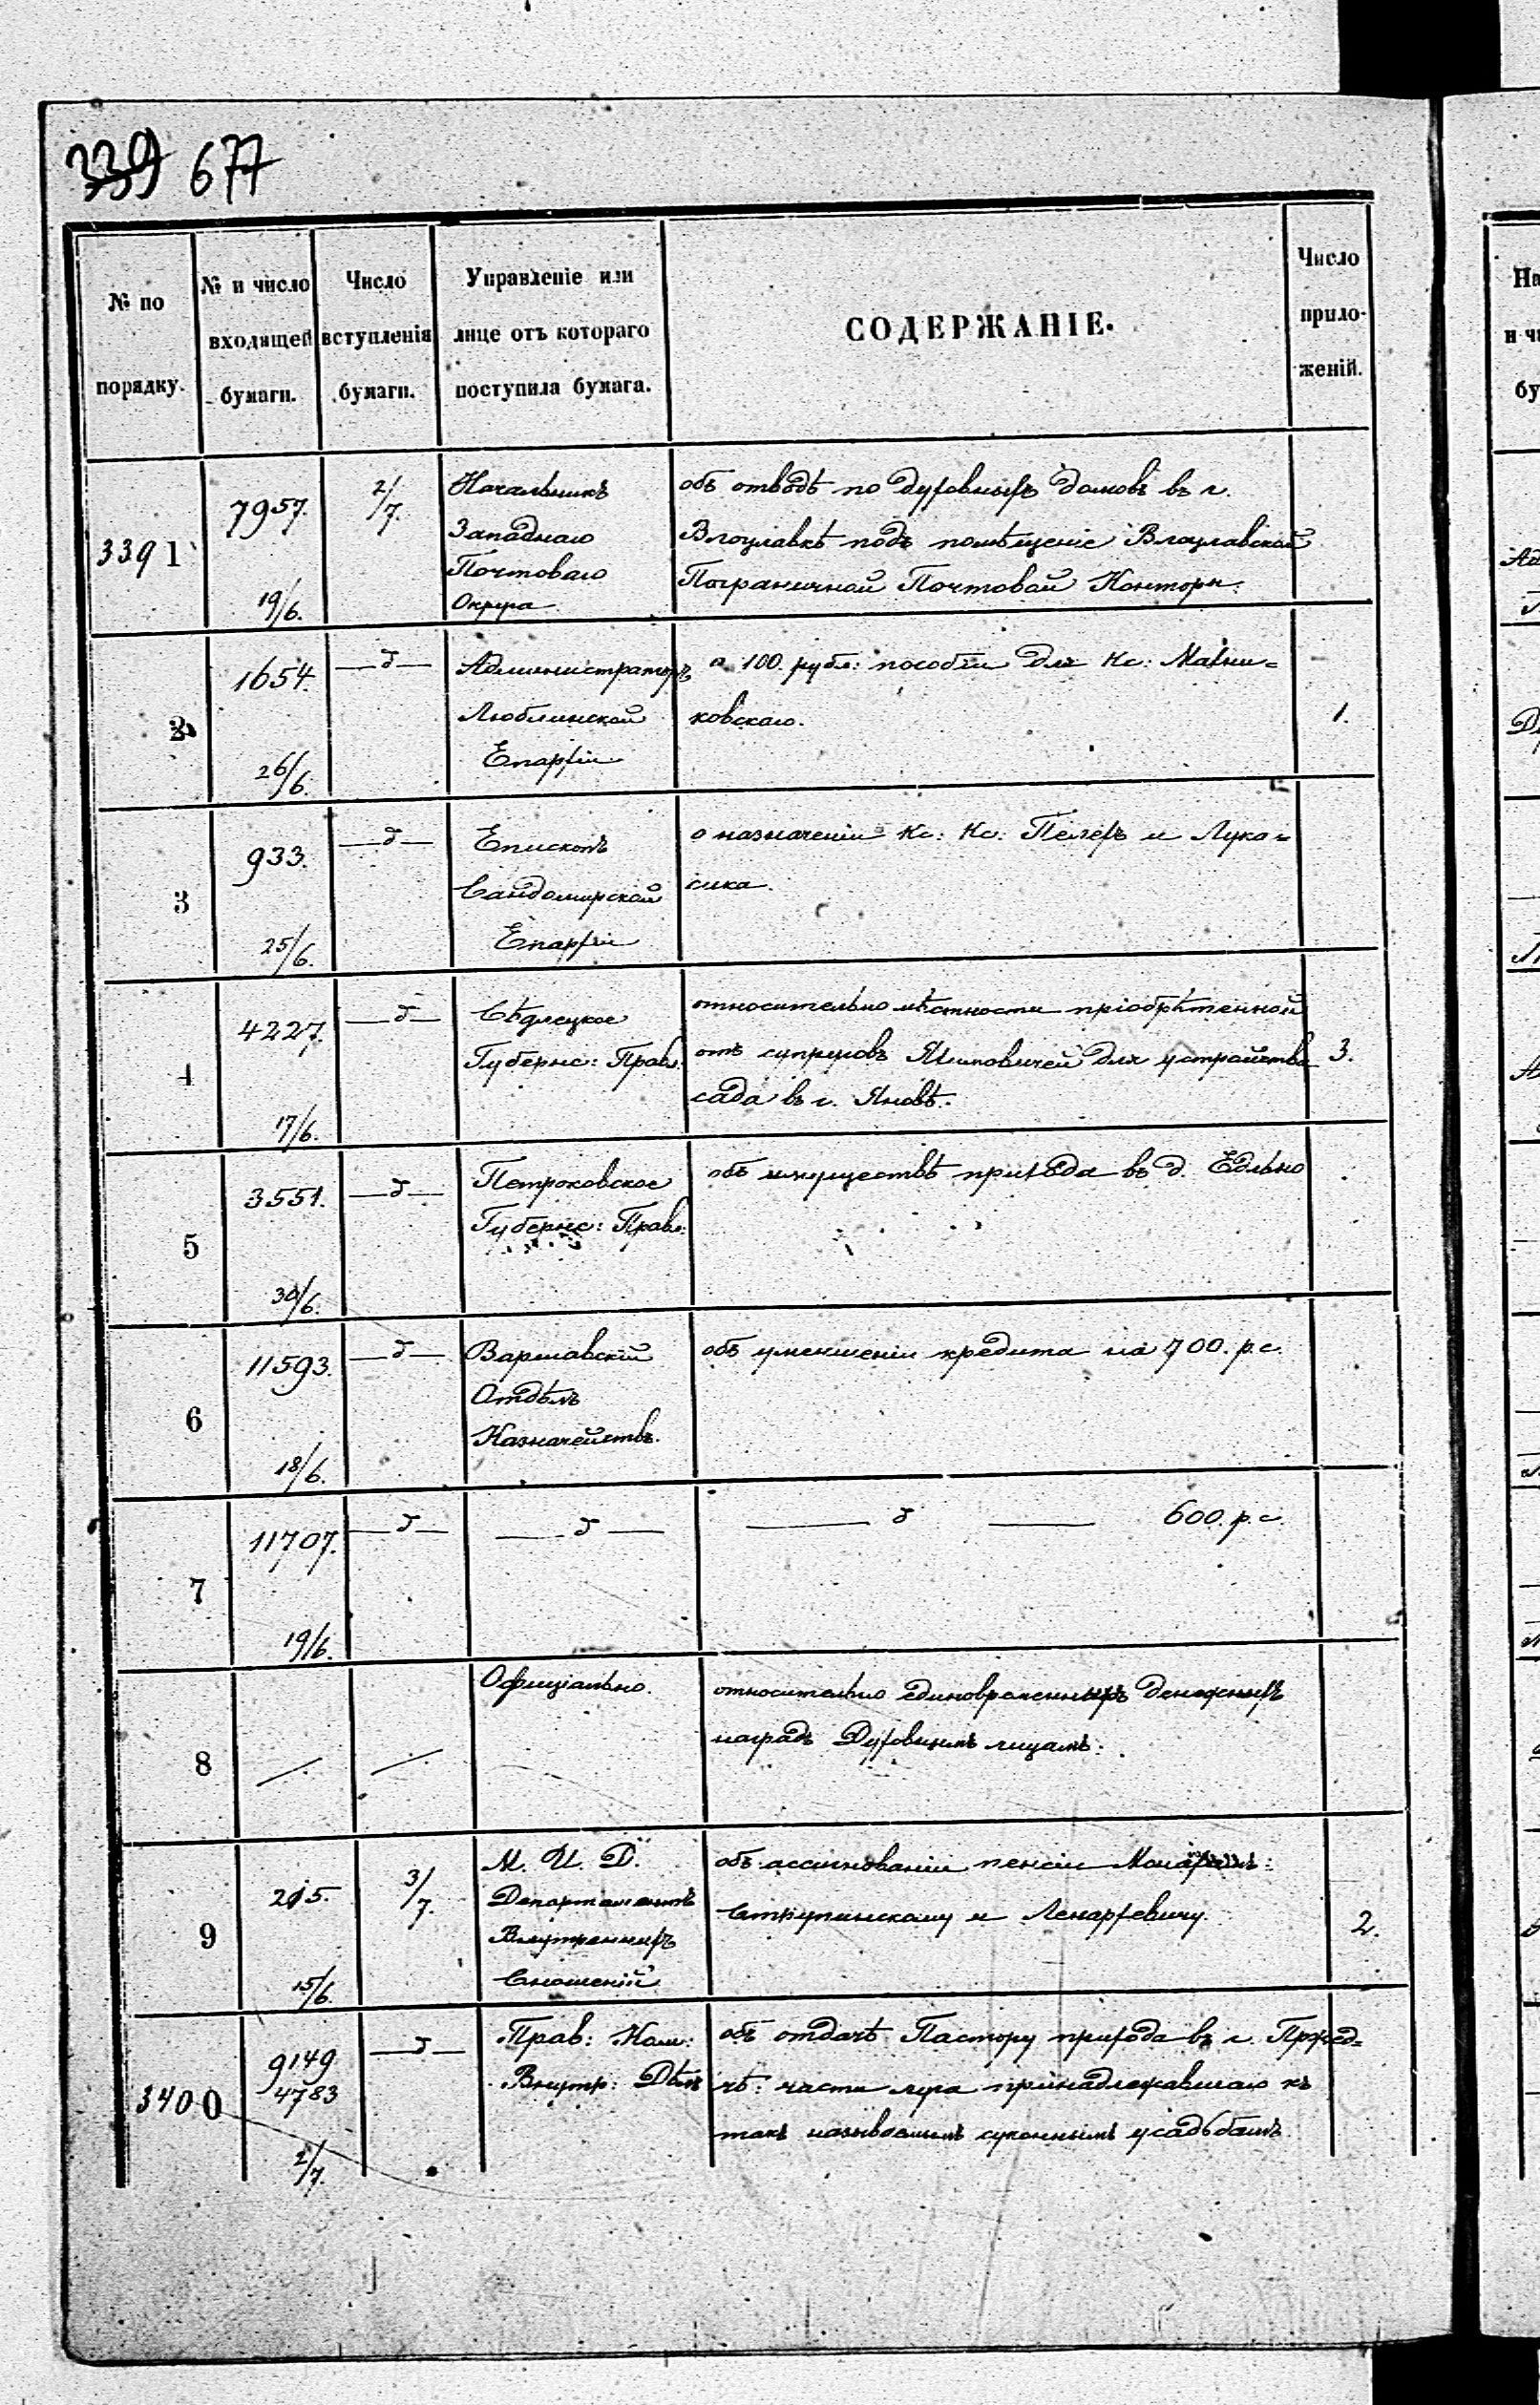 339 677
№ по порядку.
№ и число входящей бумаги.
Число вступленія бумаги.
Управленіе или лице отъ котораго поступила бумага.
СОДЕРЖАНІЕ.
Число приложеній.
3391
7957.
19/6.
2/7.
Начальникъ
Западнаго
Почтоваго
Округа
объ отводѣ по духовныхъ домовъ въ г.
Влоцлавкѣ подъ помѣщеніе Влоцлавской
Пограничной Почтовой Конторы.
2
1654.
26/6.
—д—
Администраторъ
Люблинской
Епархіи
о 100. рубл: пособіи для Кс:
ковскаго.
1.
3
933.
25/6.
—д—
Епископъ
Сандомирской
Епархіи
о назначеніи Кс: Кс: Пелехъ и Лука=
сика.
4
4227.
17/6.
—д—
Сѣдлецкое
Губернс: Правл:
относительно мѣстности пріобрѣтенной
отъ супруговъ для устройства
сада въ г. Яновѣ.
3.
5
3551.
30/6.
—д—
Петроковское
Губернс: Правл:
объ имуществѣ прихода въ д. Едльно
6
11593.
18/6.
—д—
Варшавскій
Отдѣлъ
Казначействъ.
объ уменьшеніи кредита на 700. р. с.
7
11707.
19/6.
—д—
—д—
—д— 600. р. с.
8
Офиціально.
относительно единовременныхъ денежныхъ
наградъ Духовнымъ лицамъ.
9
215.
15/6.
3/7.
М. И. Д.
Департаментъ
Внутреннихъ
Сношеній
объ ассигнованіи пенсіи Монахамъ:
Сткупинскому и Ленархевичу.
2.
3400
9149
4783
2/7.
—д—
Прав: Ком:
Внутр: Дѣлъ
объ отдачѣ Пастору прихода въ г. Пржед=
чѣ: части луга принадлежавшаго къ
такъ называемымъ суконнымъ усадьбамъ